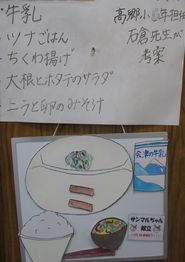 ・牛乳
・ツナごはん
・ちくわ揚げ
・大根とホタテのサラダ
・ニラと卵のみそ汁
高郷小 年担任
石倉先生が
考案
会津の牛乳
サンマルちゃん
献立